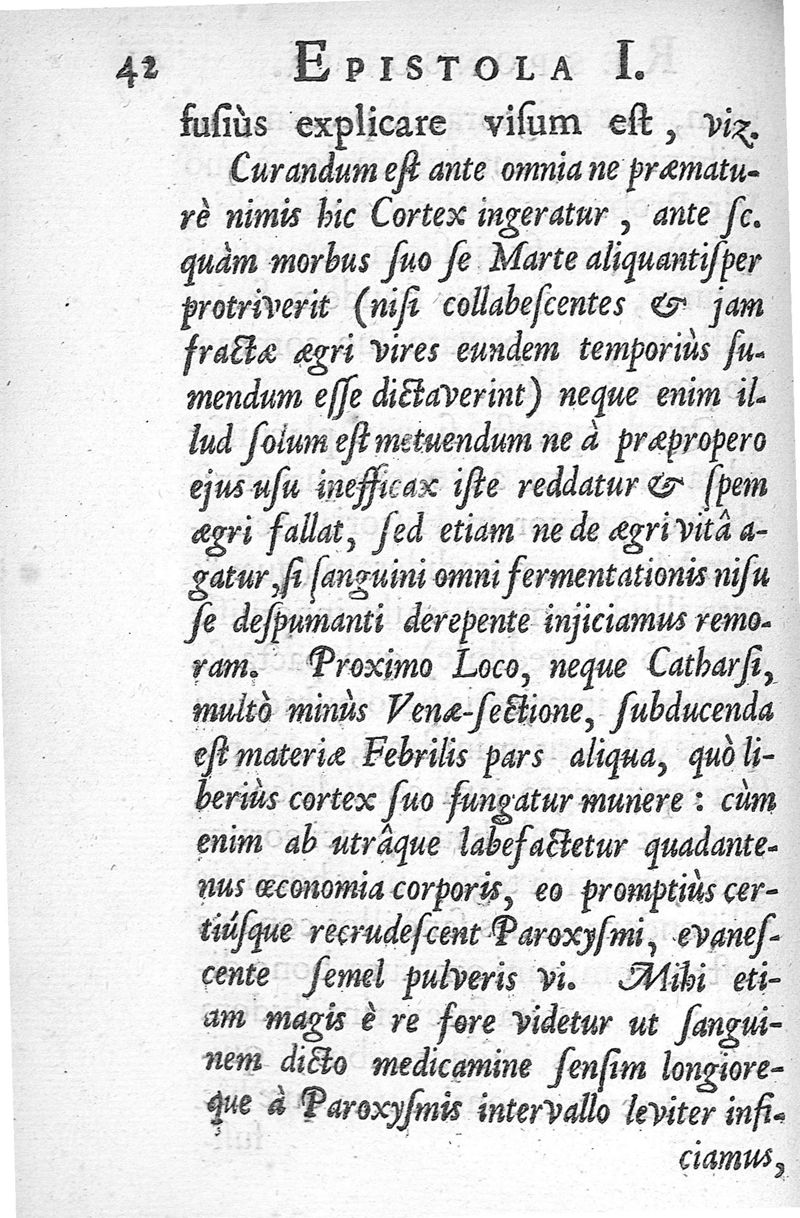 42 EPISTOLA I.
fuſiùs explicare viſum eſt, viz.
Curandum eſt ante omnia ne præmatu-
rè nimis hic Cortex ingeratur, ante ſc.
quàm morbus ſuo ſe Marte aliquantiſper
protriverit (niſi collabeſcentes & jam
fractæ ægri vires eundem temporiùs ſu-
mendum eſſe dictaverint) neque enim il-
lud ſolum eſt metuendum ne à præpropero
ejus uſu inefficax iſte reddatur & ſpem
ægri fallat, ſed etiam ne de ægri vitâ a-
gatur, ſi ſanguini omni fermentationis niſu
ſe deſpumanti derepente injiciamus remo-
ram. Proximo Loco, neque Catharſi,
multò minùs Venæ-ſectione, ſubducenda
eſt materiæ Febrilis pars aliqua, quò li-
beriùs cortex ſuo fungatur munere: cùm
enim ab utrâque labefactetur quadante-
nus œconomia corporis, eo promptiùs cer-
tiúſque recrudeſcent Paroxyſmi, evaneſ-
cente ſemel pulveris vi. Mihi eti-
am magis è re fore videtur ut ſangui-
nem dicto medicamine ſenſim longiore-
que à Paroxyſmis intervallo leviter infi-
ciamus,